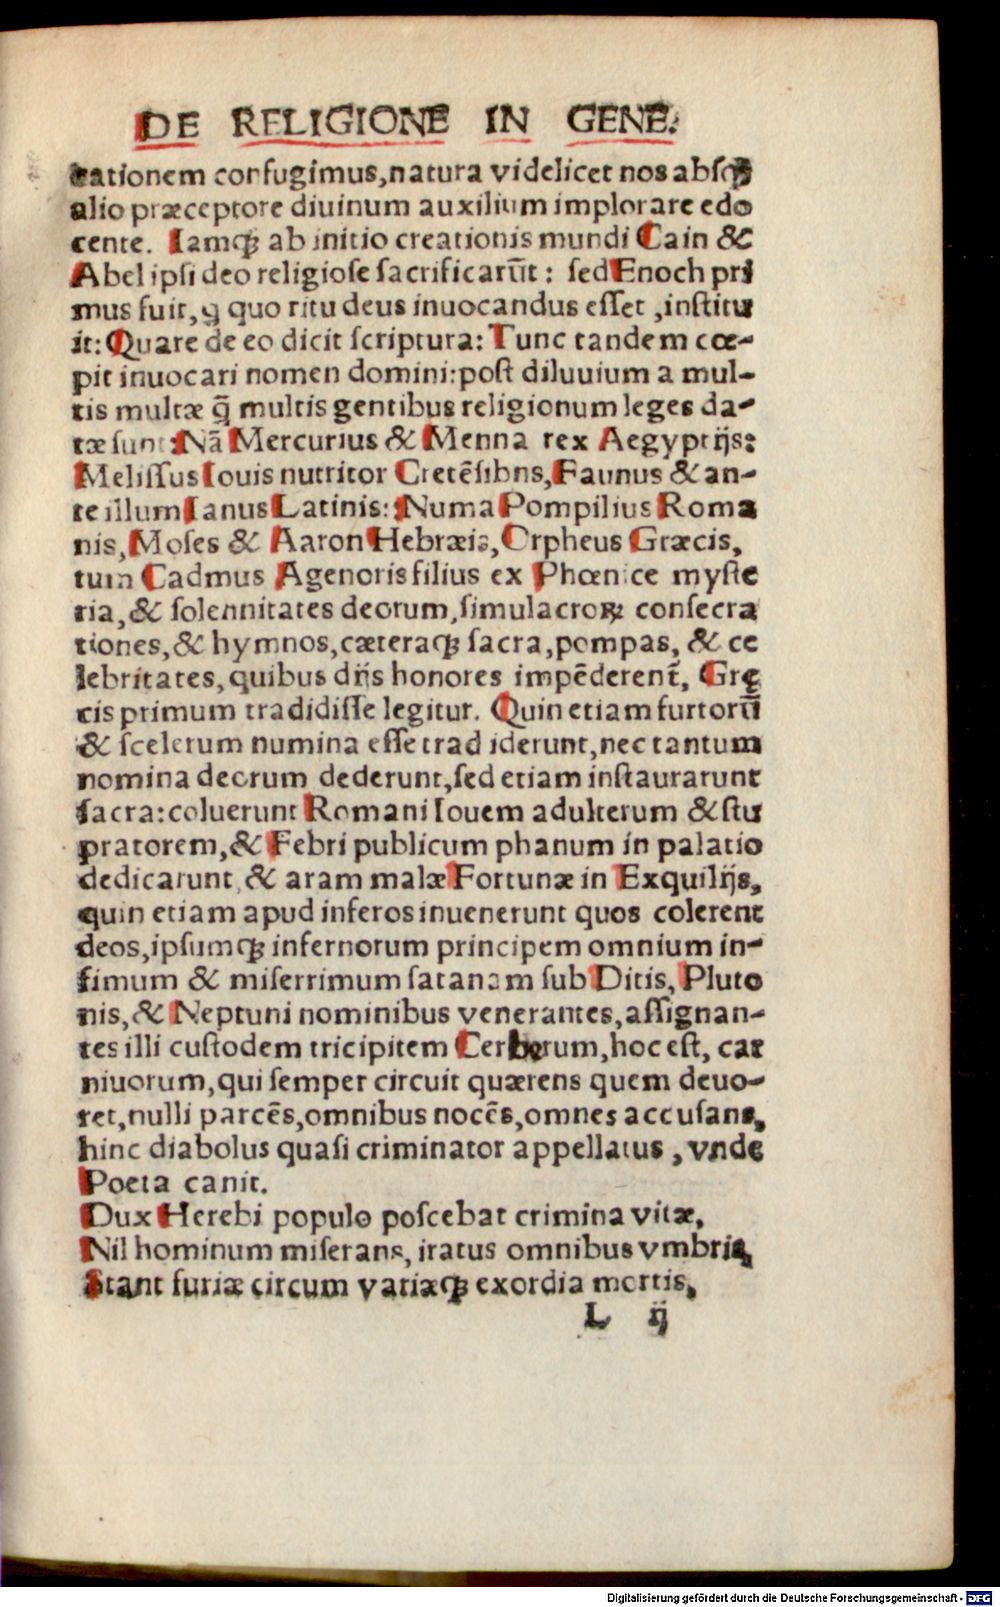 DE RELIGIONE IN GENE.
rationem confugimus,natura videlicet nos absqꝫ
alio præceptore diuinum auxilium implorare edo
cente. Iamqꝫ ab initio creationis mundi Cain &
Abel ipsi deo religiose sacrificarūt: sed Enoch pri
mus fuit, ꝙ quo ritu deus inuocandus esset ,institu
it: Quare de eo dicit scriptura: Tunc tandem cœ-
pit inuocari nomen domini:post diluuium a mul-
tis multæ q̄ multis gentibus religionum leges da-
tæ sunt: Nā Mercurius & Menna rex Aegyptijs:
Melissus Iouis nutritor Cretēsibns, Faunus & an-
te illum Ianus Latinis: Numa Pompilius Roma
nis, Moses & Aaron Hebræis, Orpheus Græcis,
tum Cadmus Agenoris filius ex Phœnice myste
ria, & solennitates deorum,simulacroꝝ consecra
tiones, & hymnos,cæteraqꝫ sacra,pompas, & ce
lebritates,quibus dijs honores impēderent̄, Grę
cis primum tradidisse legitur. Quin etiam furtorū
& scelerum numina esse trad iderunt,nec tantum
nomina deorum dederunt,sed etiam instaurarunt
sacra:coluerunt Romani Iouem adulterum & stu
pratorem,& Febri publicum phanum in palatio
dedicarunt, & aram malæ Fortunæ in Exquilijs,
quin etiam apud inferos inuenerunt quos colerent
deos,ipsumqꝫ infernorum principem omnium in-
fimum & miserrimum satanam sub Ditis, Pluto
nis, & Neptuni nominibus venerantes,assignan-
tes illi custodem tricipitem Cerberum,hoc est, car
niuorum,qui semper circuit quærens quem deuo-
ret,nulli parcēs,omnibus nocēs,omnes accusans,
hinc diabolus quasi criminator appellatus , vnde
Poeta canit.
Dux Herebi populo poscebat crimina vitæ,
Nil hominum miserans, iratus omnibus vmbris,
Stant furiæ circum variæqꝫ exordia mortis,
L ij
Digitalisierung gefördert durch die Deutsche Forschungsgemeinschaft - DFG